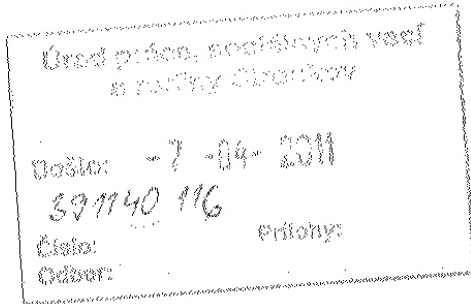 Úrad práce, sociálnych vecí
a rodiny Stropkov
Došlo: -7 -04- 2011
391140 116
Číslo: Prílohy:
Odbor: